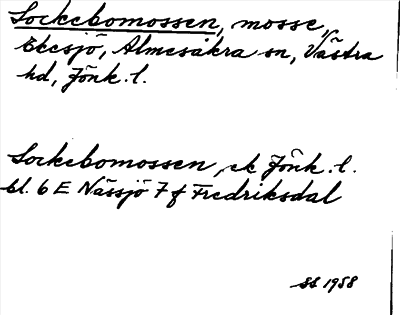 Sockebomossen, mosse,
Eksjö, Almesåkra sn, Västra
hd, Jönk. l.
Sockebomossen, ek Jönk. l.
bl. 6 E Nässjö 7 f Fredriksdal
SS 1958